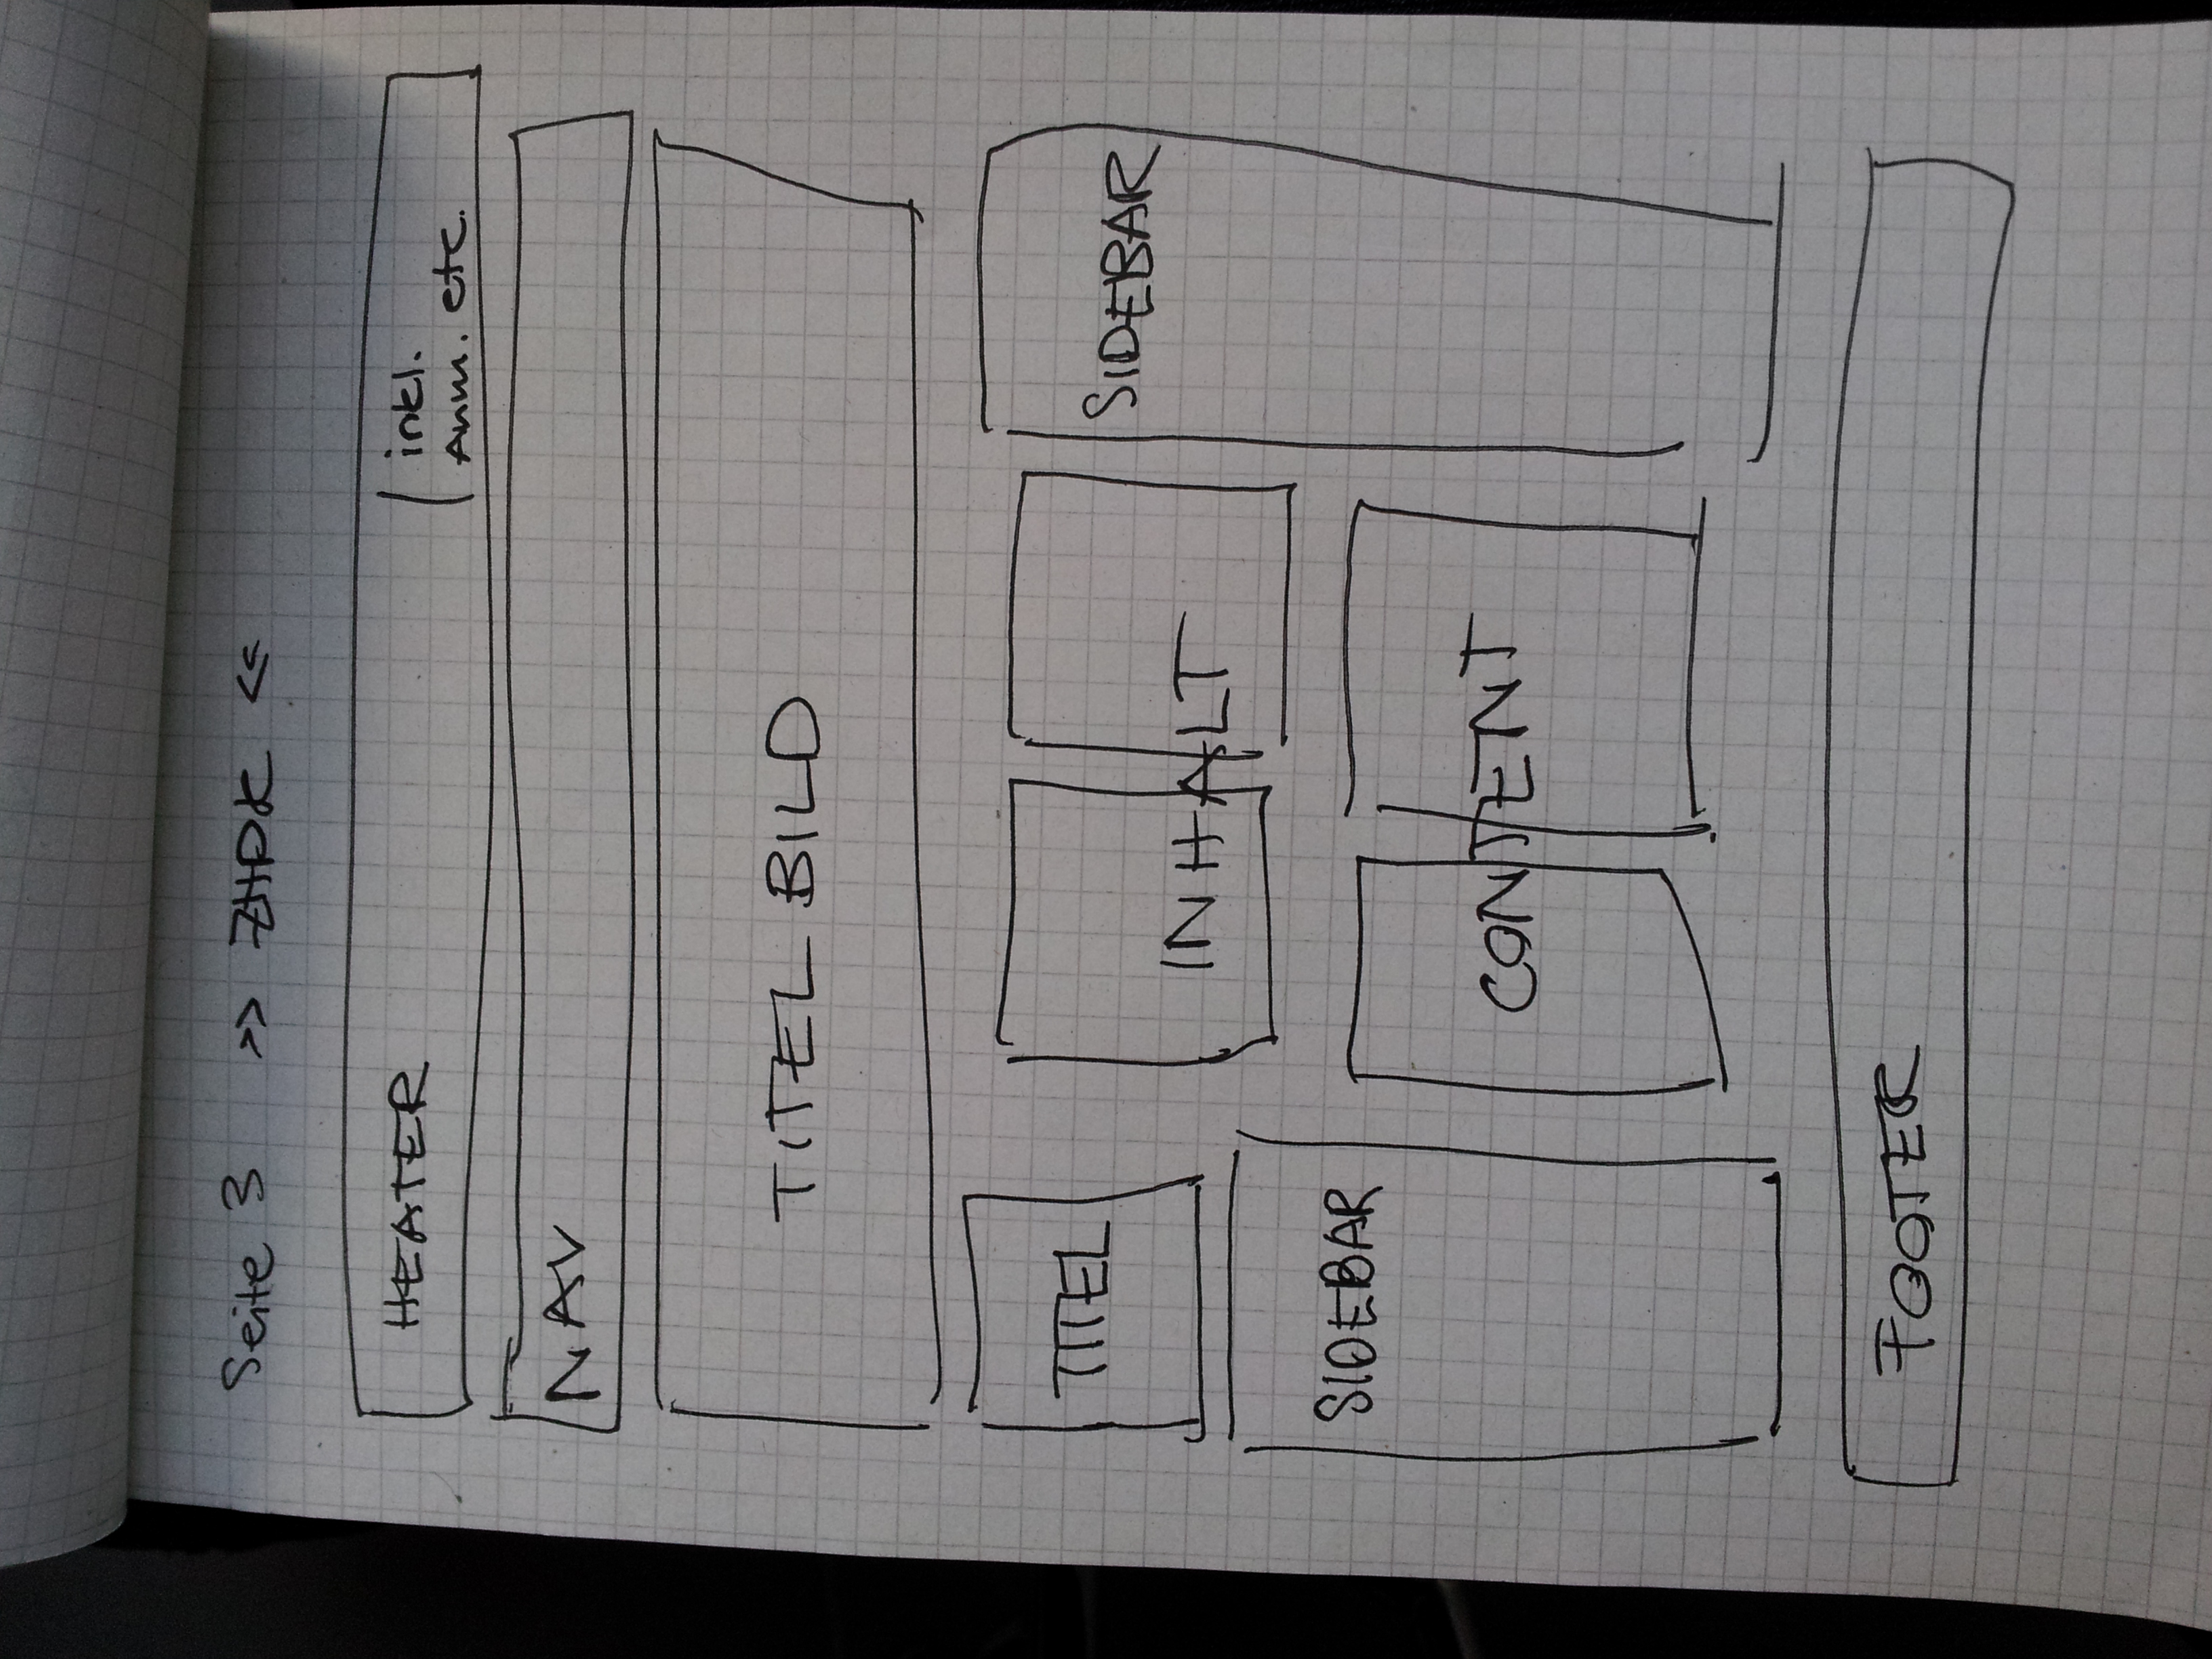 Seite 3 >> ZHDK <<
HEATER
(inkl.
Anm. etc.
NAV
TITEL BILD
TITEL
INHALT
SIDEBAR
SIDEBAR
CONTENT
FOOTER